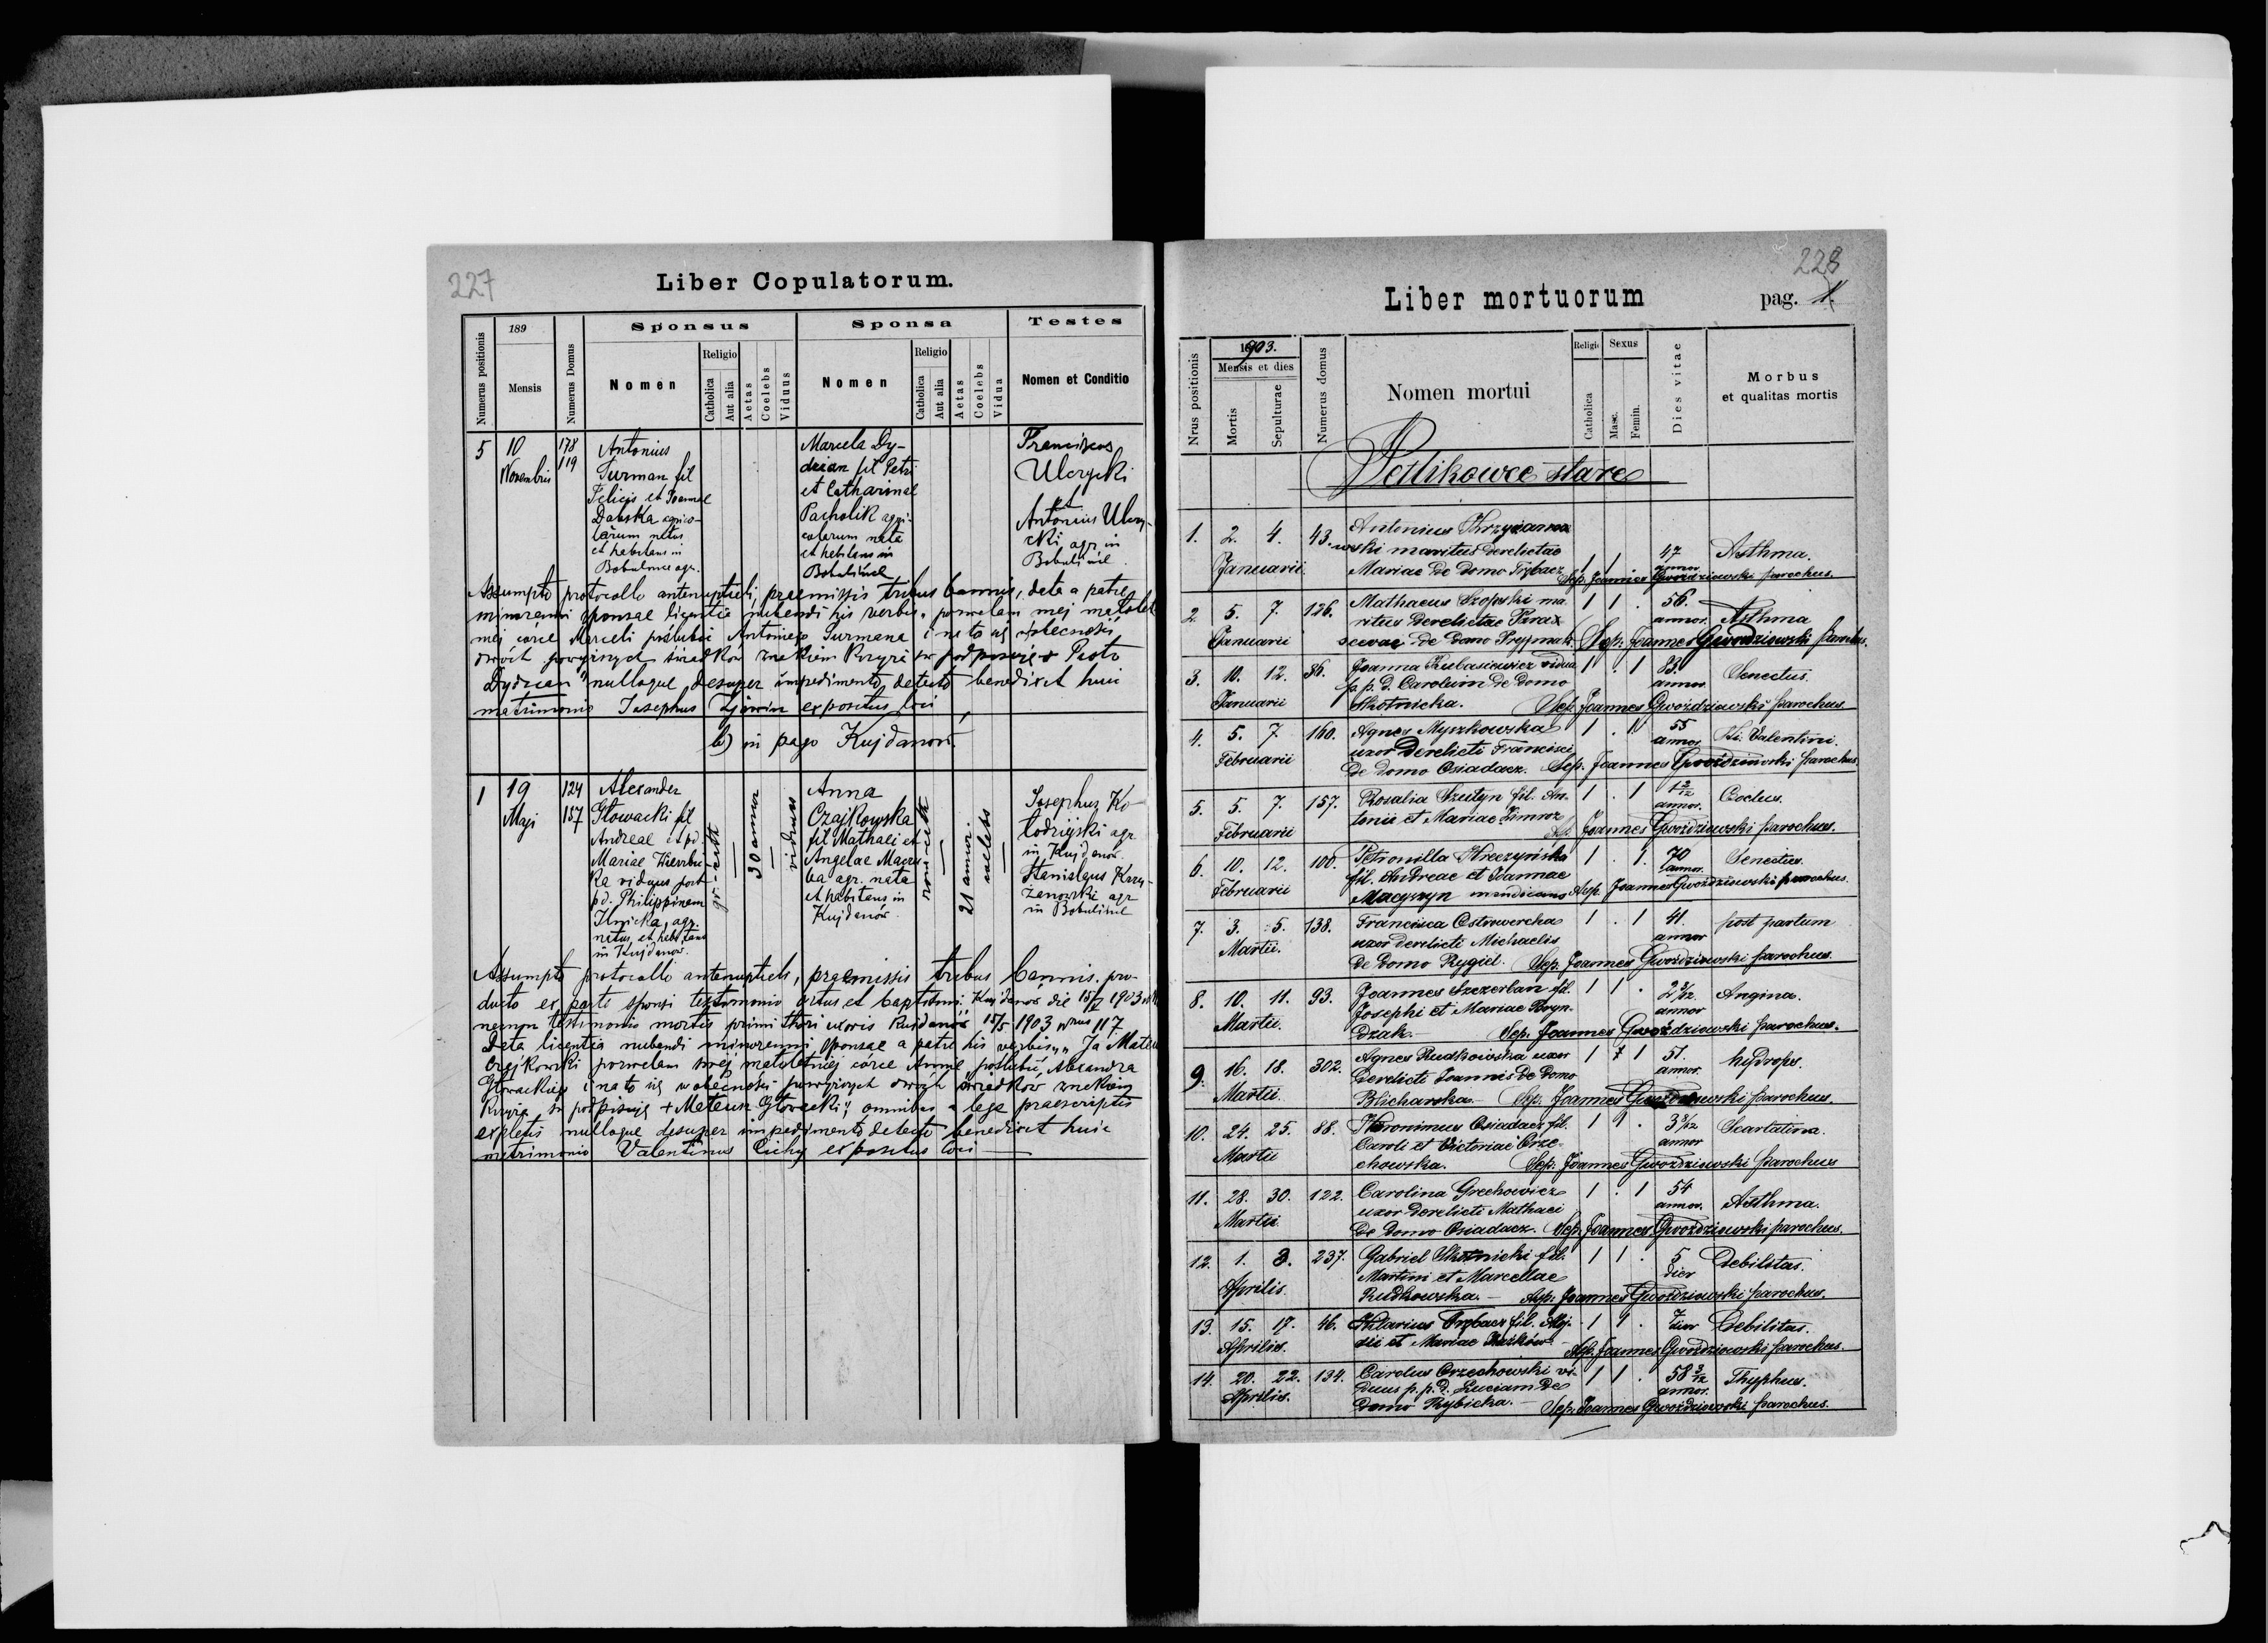 227
Liber Copulatorum.
Numerus positionis
189
Mensis
Numerus Domus
Sponsus
Nomen
Religio
Catholica
Aut alia
Aetas
Coelebs
Viduus
Sponsa
Nomen
Religio
Catholica
Aut alia
Aetas
Coelebs
Vidua
Testes
Nomen et Conditio
5
10
Novembris
178
119
Antonius
Surman fil
Felicis et Joannae
Dabska agrico-
larum natus
et habitans in
Bobulince agr.
Marcela Dy-
drian fil Petri
et Catharinae
Pacholik agri-
colarum nata
et habitans in
Franciscus
Ulczycki
et
Antonius Ulczy-
cki agr. in
Assumpto protocollo antenuptieli, praemissis tribus bannis, data a patre
minorenni sponsae licentia nubendi his verbis "pozwalam mej małolet
niej córce Marceli poślubić Antoniego Surmana i na to się w obecności
dwóch świadków znakiem Krzyża podpisuję + Piotr
Dydrian" nulloque desuper impedimento detecto benedixit huic
matrimonio Josephus expositus loci
b) in pago Kujdanow.
1
19
Maji
124
157
Alexander
Głowacki fil
Andreae et pd.
Mariae
ka viduus post
pd. Philippinam
Ilnicka, agr.
natus et habitans
in Kujdanow.
30 annor
viduus
Anna
Czajkowska
fil Mathaei et
Angelae
agr. nata
et habitans in
Kujdanów.
21 annor.
coelebs
Josephus Ko-
łodzijski agr
in Kujdanów.
Stanislaus Krzy-
żanowski agr
in
Assumpto protocollo antenuptieli, praemissis tribus bannis, pro-
ducto ex parte sponsi testimonio ortus et baptismi Kujdanów die 1903
testimonio mortis primi thori uxoris Kujdanów 15/5 1903 117.
Data licentia nubendi minorenni sponsae a patre his verbis "Ja
Czajkowski pozwalam swej małoletniej córce Annie poślubić Alexandra
Głowackiego i na to się w obecności dwóch świadków znakiem
Krzyża podpisuję + Mateusz Głowacki" omnibus a lege praescriptis
expletis nulloque desuper impedimento detecto benedixit huic
matrimonio Valentinus Cichy expositus loci
228
Liber mortuorum
pag. 1.
Nrus positionis
1903.
Mensis et dies
Mortis
Sepulturae
Numerus domus
Nomen mortui
Religio
Catholica
Sexus
Masc.
Femin.
Dies vitae
Morbus
et qualitas mortis
Petlikowce stare
1. 2. 4. 43. Antonius Krzyżano
wski maritus derelictae
Januarii Mariae de domo Trybacz 1 1 47 annor Asthma.
Sep. Joannes Gwoździowski parochus.
2. 5. 7. 126. Mathaeus Szopski ma-
ritus derelictae Paras
Januarii scevae de domo 1 1 . 56. annor. Asthma
Sep. Joannes Gwoździowski parochus.
3. 10. 12. 86. Joanna Kubasiewicz vidua
p. p. d. Carolum de domo
Januarii Skotnicka. 1 . 1 83. annor. Senectus.
Sep. Joannes Gwoździowski parochus.
4. 5. 7. 160. Agnes Myszkowska
uxor derelicti Francisci
Februarii de domo Osiadacz. 1 . 1 55 annor. Valentini.
Sep. Joannes Gwoździowski parochus.
5. 5. 7. 157. Rosalia Szutyn fil. An-
Februarii tonii et Mariae Zimroz 1 . 1 annor.
Sep. Joannes Gwoździowski parochus.
6. 10. 12. 100. Petronilla
fil. Andreae et Joannae
Februarii 1 . 1. 70 annor. Senectus.
Sep. Joannes Gwoździowski parochus.
7. 3. 5. 138. Francisca Ostrowercha
uxor derelicti Michaelis
Martii. de domo Rygiel. 1 . 1 41. annor post partum
Sep. Joannes Gwoździowski parochus.
8. 10. 11. 93. Joannes Szczerban fil.
Josephi et Mariae Bryn-
Martii. dzak. 1 1 . annor Angina.
Sep. Joannes Gwoździowski parochus.
9. 16. 18. 302. Agnes Rudkowska uxor
derelicti Joannis de domo
Martii. Blicharska. 1 1 51. annor. hydrops.
Sep. Joannes Gwoździowski parochus.
10. 24. 25. 88. Hieronimus Osiadacz fil.
Caroli et Victoriae Orze-
Martii chowska. 1 1 . annor Scarlatina.
Sep. Joannes Gwoździowski parochus
11. 28. 30. 122. Carolina Grechowicz
uxor derelicti Mathaei
Martii de domo Osiadacz. 1 . 1 54 annor. Asthma.
Sep. Joannes Gwoździowski parochus.
12. 1. 3. 237. Gabriel Skotnicki fil.
Martini et Marcellae
Aprilis. Rudkowska. 1 1 . 5 dier Debilitas.
Sep. Joannes Gwoździowski parochus.
13. 15. 17. 46. Hilarius Trybacz fil. Aegi-
Aprilis. dii et Mariae 1 1 . 7 dier Debilitas.
Sep. Joannes Gwoździowski parochus.
14. 20. 22. 134. Carolus Orzechowski vi-
duus p. p. d. Luciam de
Aprilis. domo Rybicka. 1 1 . 58 annor. Thyphus.
Sep. Joannes Gwoździowski parochus.